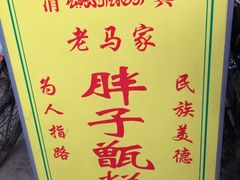 清 真
老马家
胖子甑糕
为人指路
民族美德